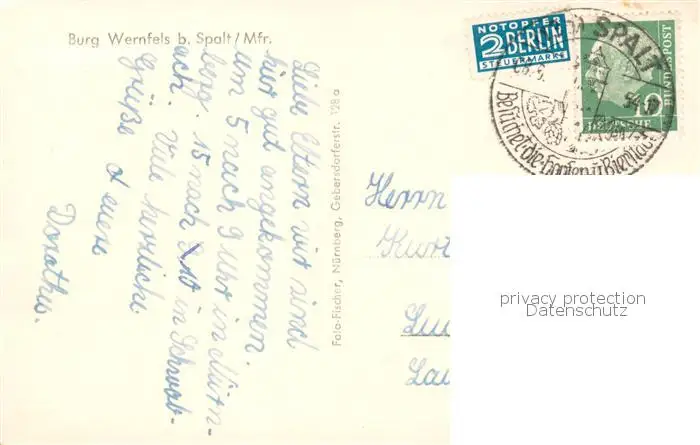 Burg Wernfels b. Spalt/Mfr.
NOTOPFER
2 BERLIN
STEUERMARKE
SPALT
54.-
DEUTSCHE
BUNDESPOST
Besuchet die Hopfen- u. Bierstadt
Liebe Eltern wir sind
hier gut angekommen.
um 5 nach 9 Uhr in Nürn-
berg. 15 nach 10 in Schwab-
ach. Viele herzliche
Grüße Eure
Dorothee.
Foto-Fischer, Nürnberg, Gebersdorferstr. 128a
Herrn
Kurt
privacy protection
Datenschutz